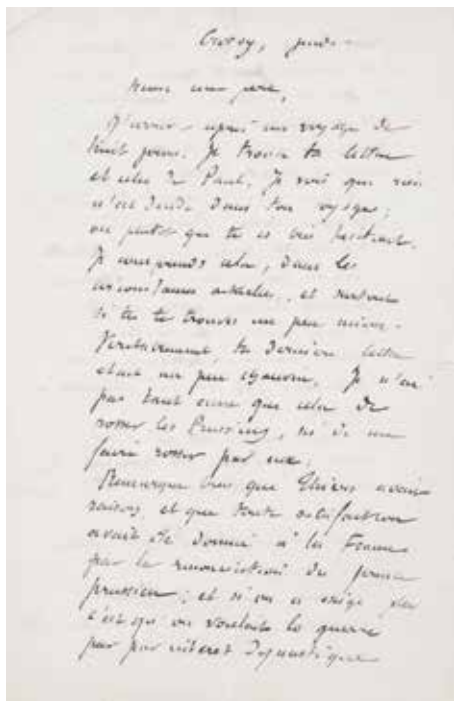 Croissy, jeudi
Mon cher père,
J'arrive après un voyage de
huit jours. Je trouve ta lettre
et celle de Paul. Je vois que rien
n'est décidé dans ton voyage;
ou plutôt que tu es très hésitant.
Je comprends cela, dans les
circonstances actuelles, et surtout
si tu te trouves un peu mieux.
Véritablement, ta dernière lettre
était un peu. Je n'ai
pas tant envie que cela de
rosser les Prussiens, ni de me
faire rosser par eux.
Remarque bien que Thiers avait
raison, et que toute satisfaction
avait été donnée à la France
par la renonciation du prince
prussien; et si on a exigé plus
c'est qu'on voulait la guerre
pur par intérêt dynastique